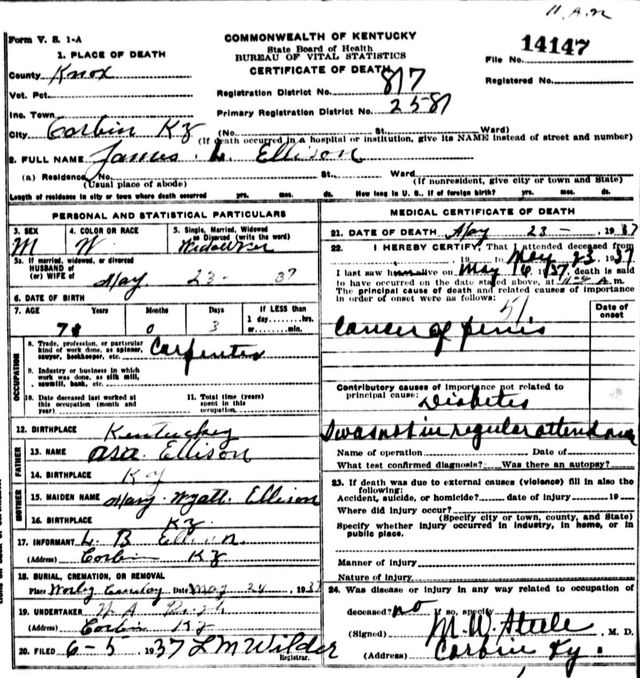 11. A.M
Form V. S. 1-A
COMMONWEALTH OF KENTUCKY
State Board of Health
BUREAU OF VITAL STATISTICS
CERTIFICATE OF DEATH
File No. 14147
Registered No.
1. PLACE OF DEATH
County Knox
Vot. Pct.
Inc. Town
City Corbin Ky
Registration District No. 817
Primary Registration District No. 2581
(No. St. Ward)
(If death occurred in a hospital or institution, give its NAME instead of street and number)
2. FULL NAME James L. Ellison
(a) Residence, No. St. Ward
(Usual place of abode) (If nonresident, give city or town and State)
Length of residence in city or town where death occurred yrs. mos. ds. How long in U. S. if of foreign birth? yrs. mos. ds.
PERSONAL AND STATISTICAL PARTICULARS
3. SEX M
4. COLOR OR RACE W
5. Single, Married, Widowed or Divorced (write the word) Widower
5a. If married, widowed, or divorced
HUSBAND of
(or) WIFE of
May 23- 37
6. DATE OF BIRTH
7. AGE Years 0 Months 3 Days If LESS than 1 day....hrs. or....min.
OCCUPATION
8. Trade, profession, or particular kind of work done, as spinner, sawyer, bookkeeper, etc. Carpenter
9. Industry or business in which work was done, as silk mill, sawmill, bank, etc.
10. Date deceased last worked at this occupation (month and year)
11. Total time (years) spent in this occupation.
12. BIRTHPLACE Kentuckey
FATHER
13. NAME Asa Ellison
14. BIRTHPLACE Ky
MOTHER
15. MAIDEN NAME Mary Wyatt Ellison
16. BIRTHPLACE Ky
17. INFORMANT L. B
(Address) Corbin Ky
18. BURIAL, CREMATION, OR REMOVAL
Place Date May 24, 1937
19. UNDERTAKER
(Address) Corbin Ky
20. FILED 6-5 1937 L M Wilder
Registrar.
MEDICAL CERTIFICATE OF DEATH
21. DATE OF DEATH May 23- , 1937
22. I HEREBY CERTIFY, That I attended deceased from
19 to May 23 1937
I last saw him alive on May 16, 1937, death is said
to have occurred on the date stated above, at 11-A m.
The principal cause of death and related causes of importance
in order of onset were as follows:
51
Date of onset
Cancer of penis
Contributory causes of importance not related to
principal cause: Diabetes
I was not in regular attendance
Name of operation Date of
What test confirmed diagnosis? Was there an autopsy?
23. If death was due to external causes (violence) fill in also the
following:
Accident, suicide, or homicide? date of injury 19
Where did injury occur?
(Specify city or town, county, and State)
Specify whether injury occurred in industry, in home, or in
public place.
Manner of injury
Nature of injury
24. Was disease or injury in any way related to occupation of
deceased? no If so, specify
(Signed) M. W. Steele M. D.
(Address) Corbin Ky.